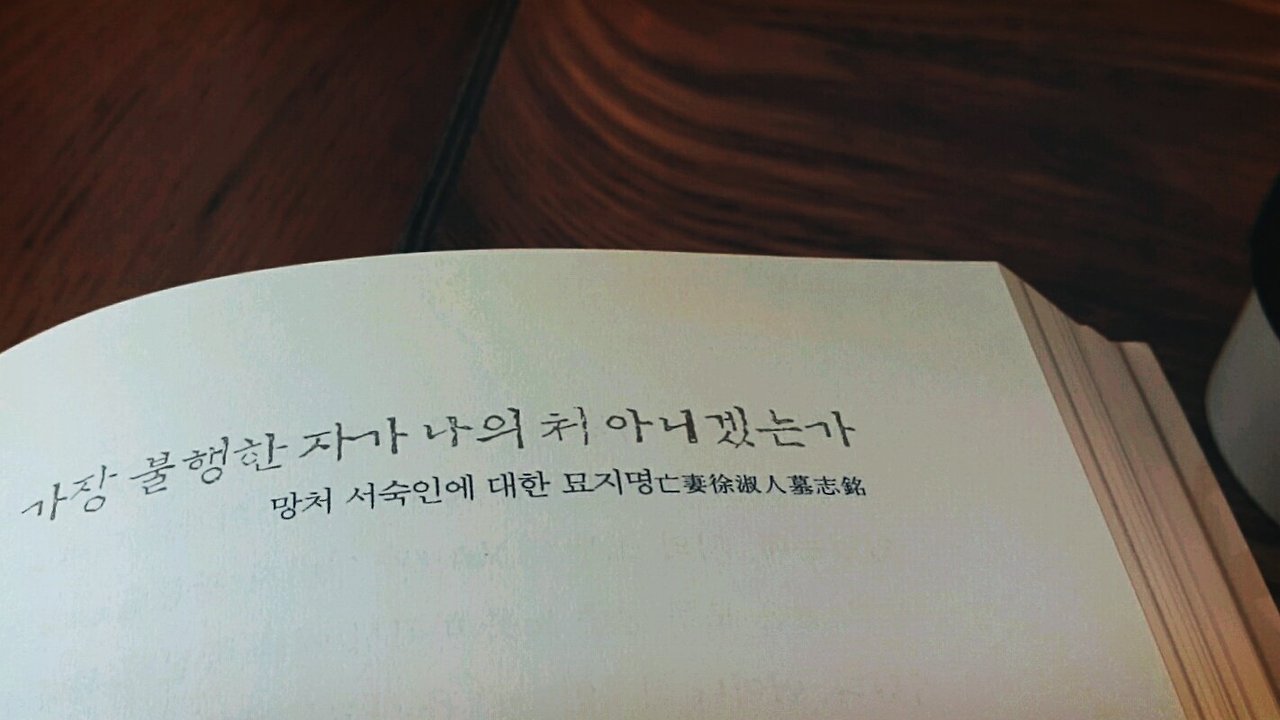 가장 불행한 자가 나의 처 아니겠는가
망처 서숙인에 대한 묘지명亡妻徐淑人墓志銘